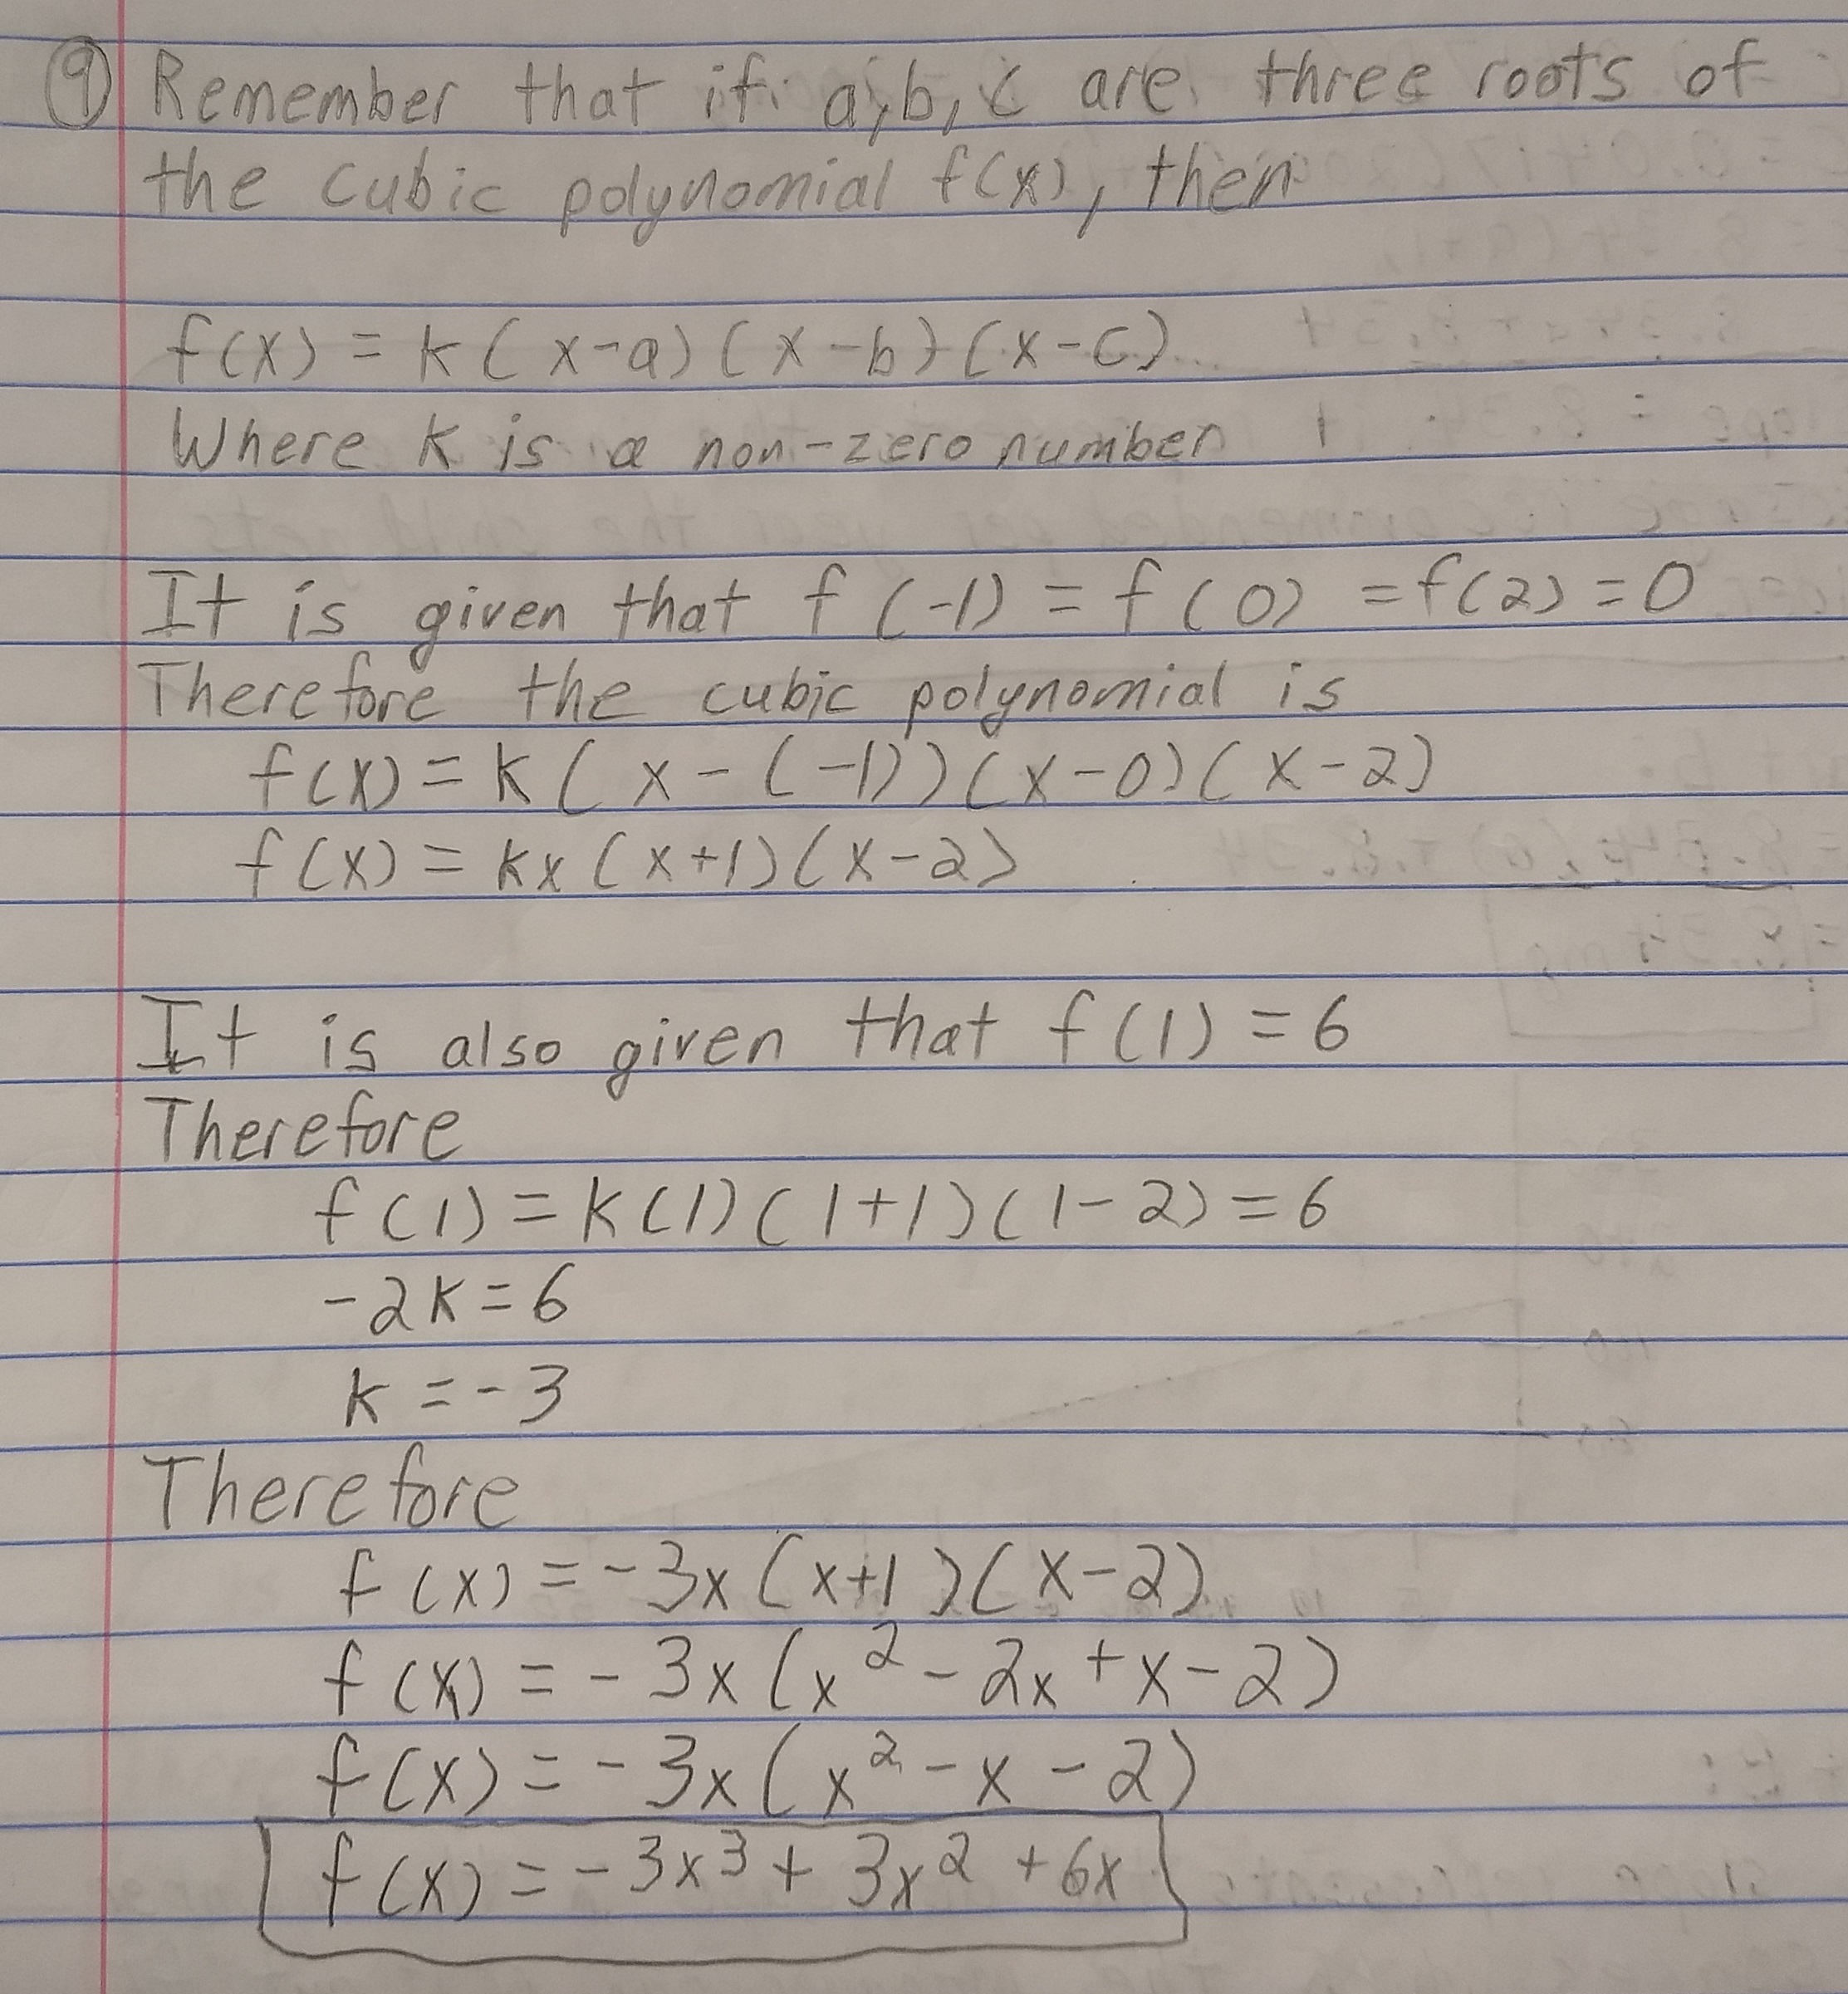 9 Remember that if a, b, c are three roots of
the cubic polynomial f(x), then
f(x) = k(x-a)(x-b)(x-c)
Where k is a non-zero number
It is given that f(-1) = f(0) = f(2) = 0
Therefore the cubic polynomial is
f(x) = k(x-(-1))(x-0)(x-2)
f(x) = kx(x+1)(x-2)
It is also given that f(1) = 6
Therefore
f(1) = k(1)(1+1)(1-2) = 6
-2k = 6
k = -3
Therefore
f(x) = -3x(x+1)(x-2)
f(x) = -3x(x² - 2x + x - 2)
f(x) = -3x(x² - x - 2)
f(x) = -3x³ + 3x² + 6x